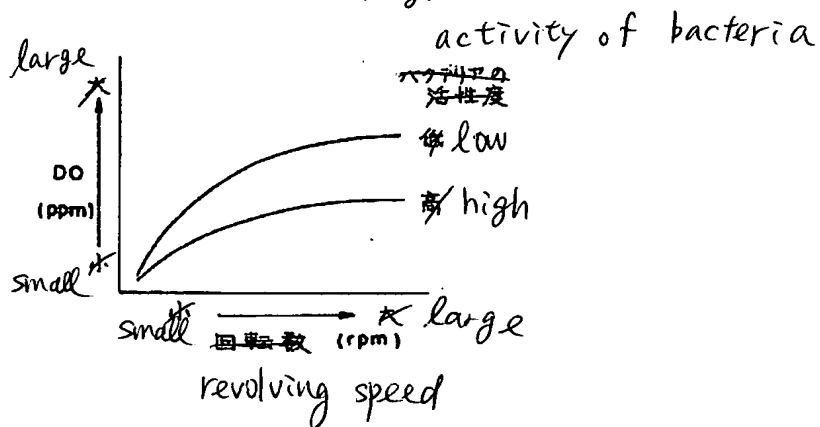 activity of bacteria
large
大
バクテリアの
活性度
低 low
DO
(ppm)
高 high
small 小
small 小 回転数 (rpm) 大 large
revolving speed